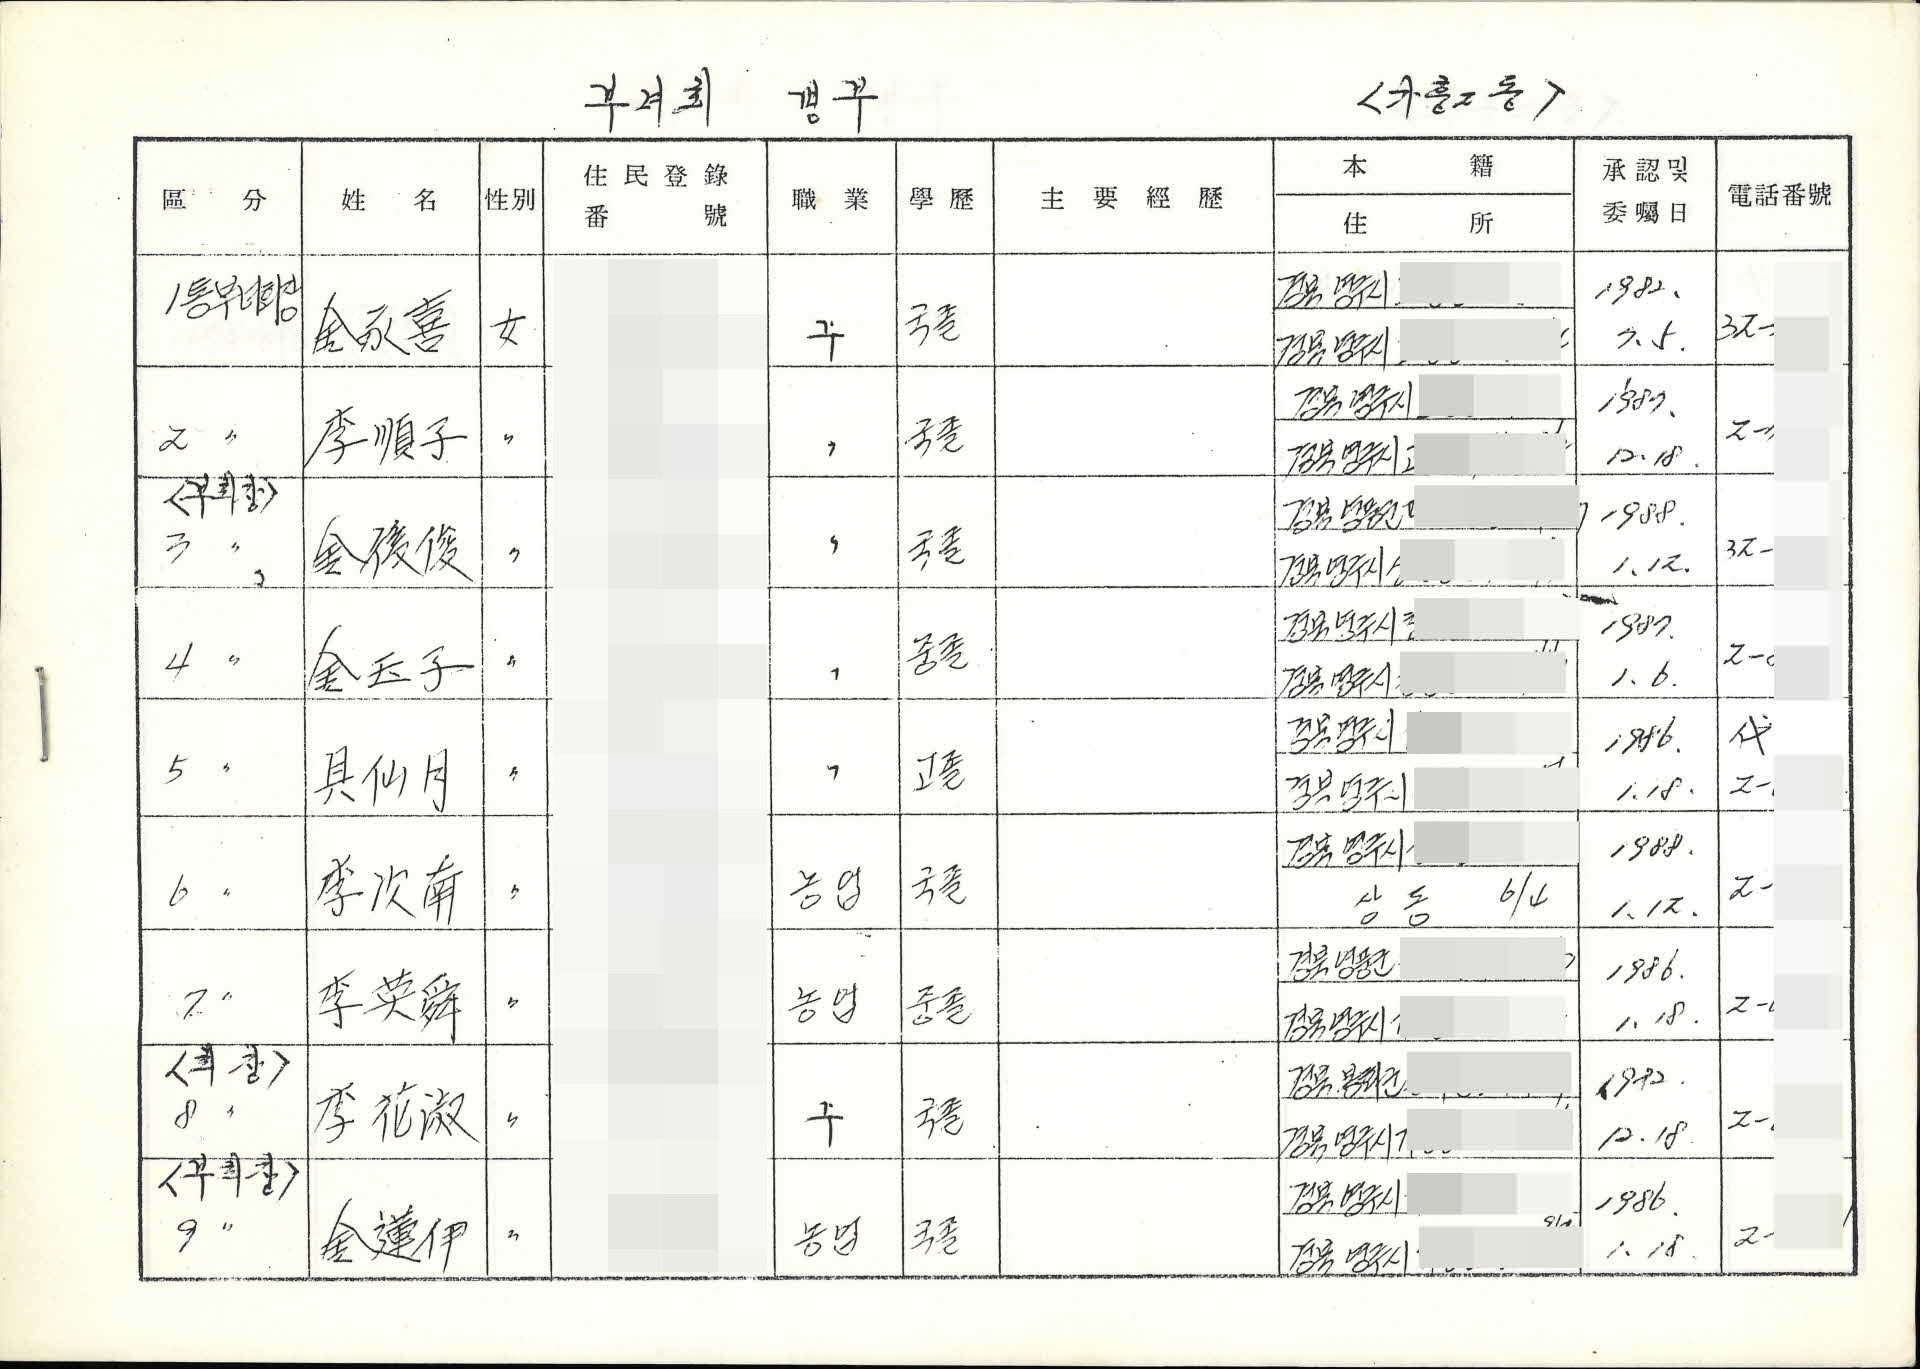 부녀회 명부 <가흥2동>
區分 姓名 性別 住民登錄番號 職業 學歷 主要經歷 本籍 住所 承認및委囑日 電話番號
1통부녀회장 金永喜 女 주 국졸 경북 영주시 경북 영주시 1982. 7.5. 32-
2 〃 李順子 〃 〃 국졸 경북 영주시 경북 영주시 1987. 12.18. 2-
<부회장>
3 〃 金後俊 〃 〃 국졸 경북 영풍군 경북 영주시 1988. 1.12. 32-
4 〃 金玉子 〃 〃 중졸 경북 영주시 경북 영주시 1987. 1.6. 2-
5 〃 具仙月 〃 〃 고졸 경북 영주시 경북 영주시 1986. 1.18. 代 2-
6 〃 李次南 〃 농업 국졸 경북 영주시 상동 6/4 1988. 1.12. 2-
7 〃 李英舜 〃 농업 중졸 경북 영풍군 경북 영주시 1986. 1.18. 2-
<회장>
8 〃 李花淑 〃 주 국졸 경북 봉화군 경북 영주시 1982. 12.18. 2-
<부회장>
9 〃 金蓮伊 〃 농업 국졸 경북 영주시 경북 영주시 1986. 1.18. 2-